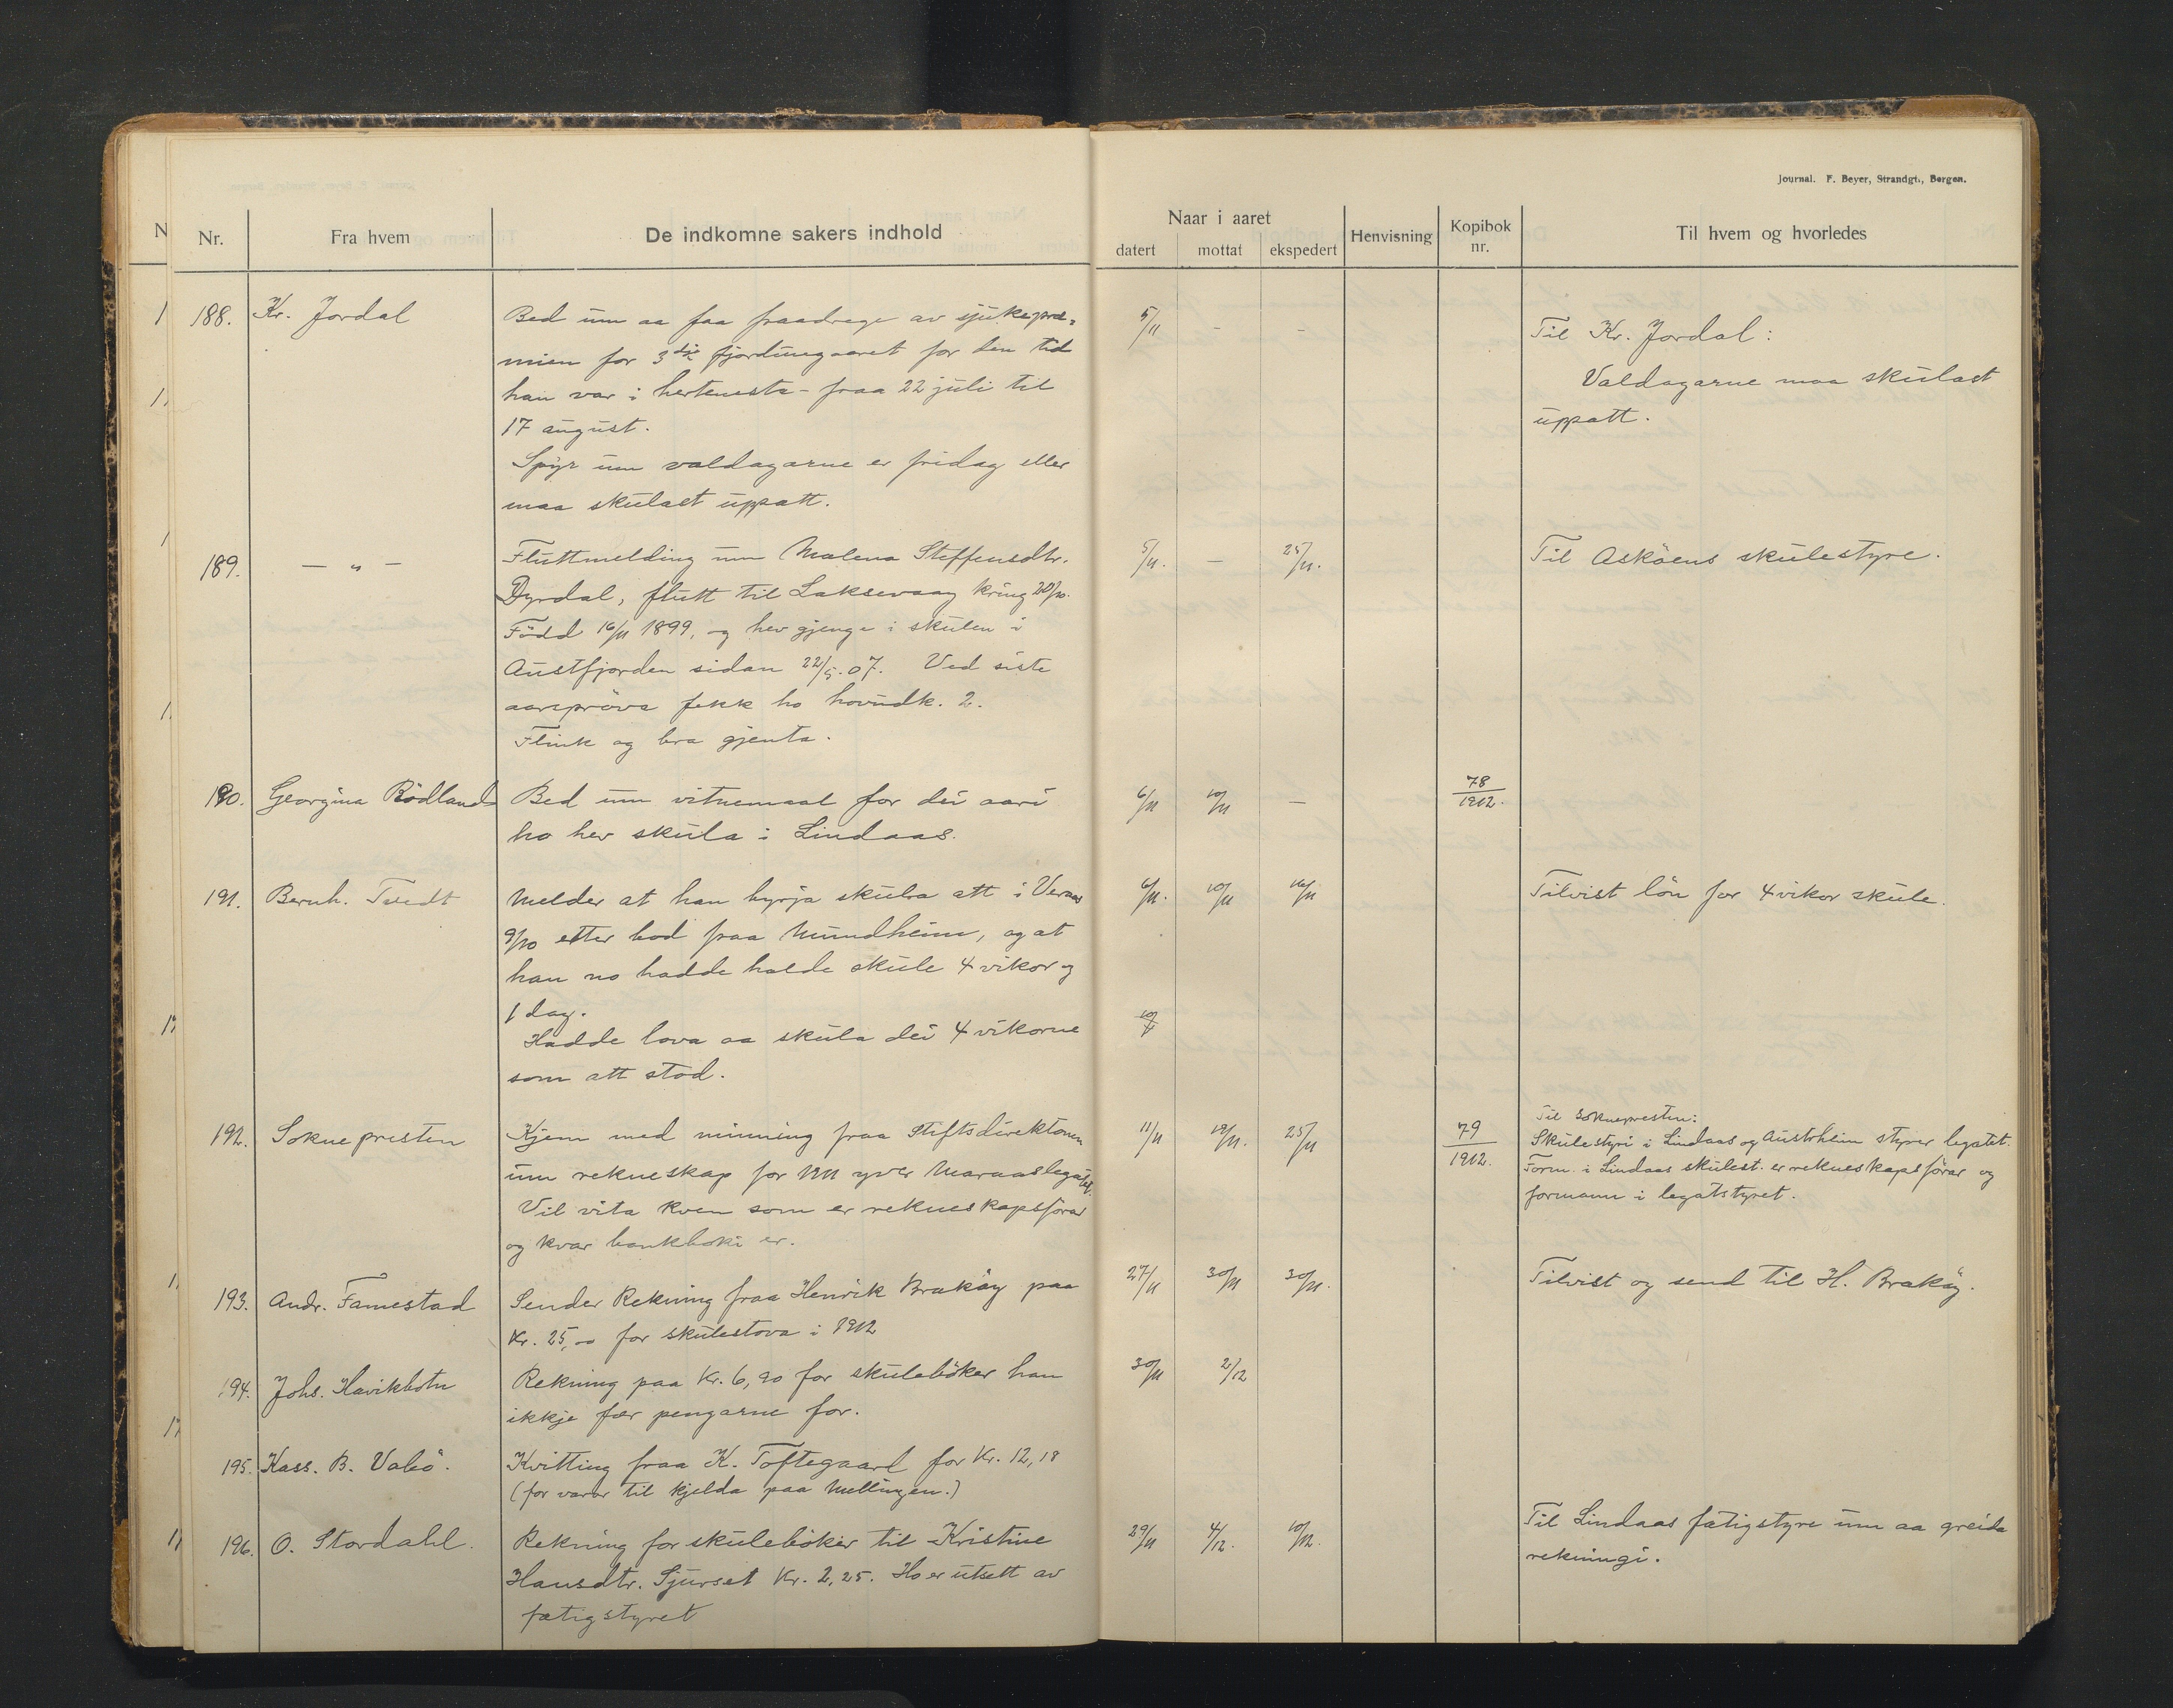 Journal. F. Beyer, Strandgt., Bergen.
Nr.
Fra hvem
De indkomne sakers indhold
Naar i aaret
datert
mottat
ekspedert
Henvisning
Kopibok
nr.
Til hvem og hvorledes
188. Kr. Jordal
Bed um aa faa fraadrege av sjukepræ-
mien for 3die fjordungaaret for den tid
han var i hertenesta - fraa 22 juli til
17 august.
Spyr um valdagarne er fridag eller
maa skulast uppatt.
5/11 - -
Til Kr. Jordal:
Valdagarne maa skulast
uppatt.
189. — " —
Fluttmelding um Malena Steffensdtr.
Dyrdal, flutt til Laksevaag kring 20/10.
Född 16/11 1899, og hev gjenge i skulen i
Austfjorden sidan 22/5.07. Ved siste
aarsprøva fekk ho hovudk. 2.
Flink og bra gjenta.
5/11. — 25/11.
Til Asköens skulestyre.
190. Georgina Rödland
Bed um vitnemaal for dei aari
ho hev skula i Lindaas.
6/11 10/11 —
78
1912.
191. Bernh. Tvedt
Melder at han byrja skula att i Vernes
9/10 etter bod fraa Mundheim, og at
han no hadde halde skule 4 vikor og
1 dag.
Hadde lova aa skula dei 4 vikorne
som att stod.
6/11. 10/11 16/11
Tilvist lön for 4 vikor skule.
192. Soknepresten
Kjem med minning fraa Stiftsdirektionen
um rekneskap for 1911 yver Maraaslegatet.
Vil vita kven som er rekneskapsförar
og kvar bankboki er.
11/11 12/11. 25/11
79
1912.
Til Soknepresten:
Skulestyri i Lindaas og Austrheim styrer legatet.
Form. i Lindaas skulest. er rekneskapsförar og
formann i legatstyret.
193. Andr. Famestad
Sender Rekning fraa Henrik Braköy paa
Kr. 25,00 for skulestova i 1912
27/11 30/11 30/11.
Tilvist og send til H. Braköy.
194. Johs. Havikbotn
Rekning paa Kr. 6,90 for skuleböker han
ikkje fær pengarne for.
30/11 2/12
195. Kass. B. Vabö.
Kvitting fraa K. Toftegaard for Kr. 12,18
(for varor til kjelda paa Mellingen.)
196. O. Stordahl.
Rekning for skuleböker til Kristine
Hansdtr. Sjurset Kr. 2,25. Ho er utsett av
fatigstyret
29/11 4/12. 10/12.
Til Lindaas fatigstyre um aa greida
rekningi.